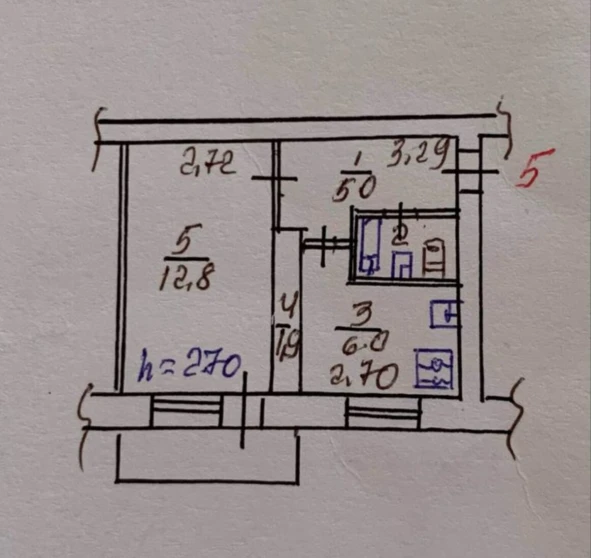 2,72
1
50
3,29
5
2
5
12,8
4
1,9
3
6.0
h=270
2,70